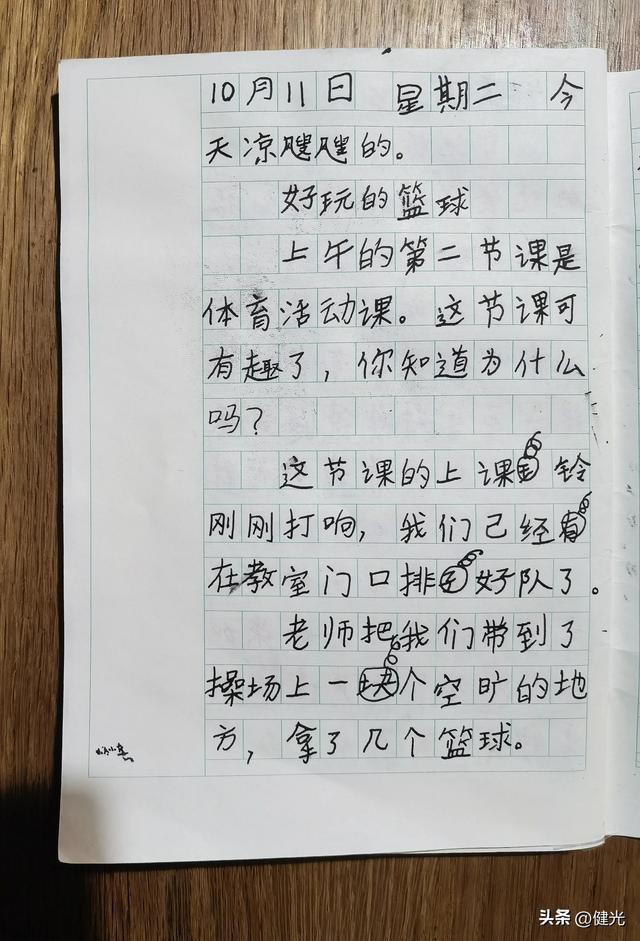 10月11日 星期二 今
天凉飕飕的。
好玩的篮球
上午的第二节课是
体育活动课。这节课可
有趣了，你知道为什么
吗？
这节课的上课铃
刚刚打响，我们已经
在教室门口排好队了。
老师把我们带到了
操场上一个空旷的地
方，拿了几个篮球。
头条 @健光